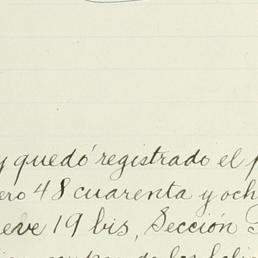 y quedó registrado el p
ero 48 cuarenta y och
ueve 19 bis, Sección